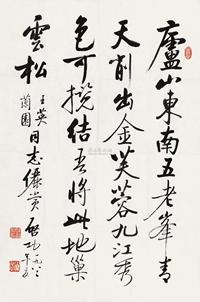 廬山東南五老峯青
天削出金芙蓉九江秀
色可攬結吾將此地巢
雲松
王英
蘭園同志儷賞
啟功